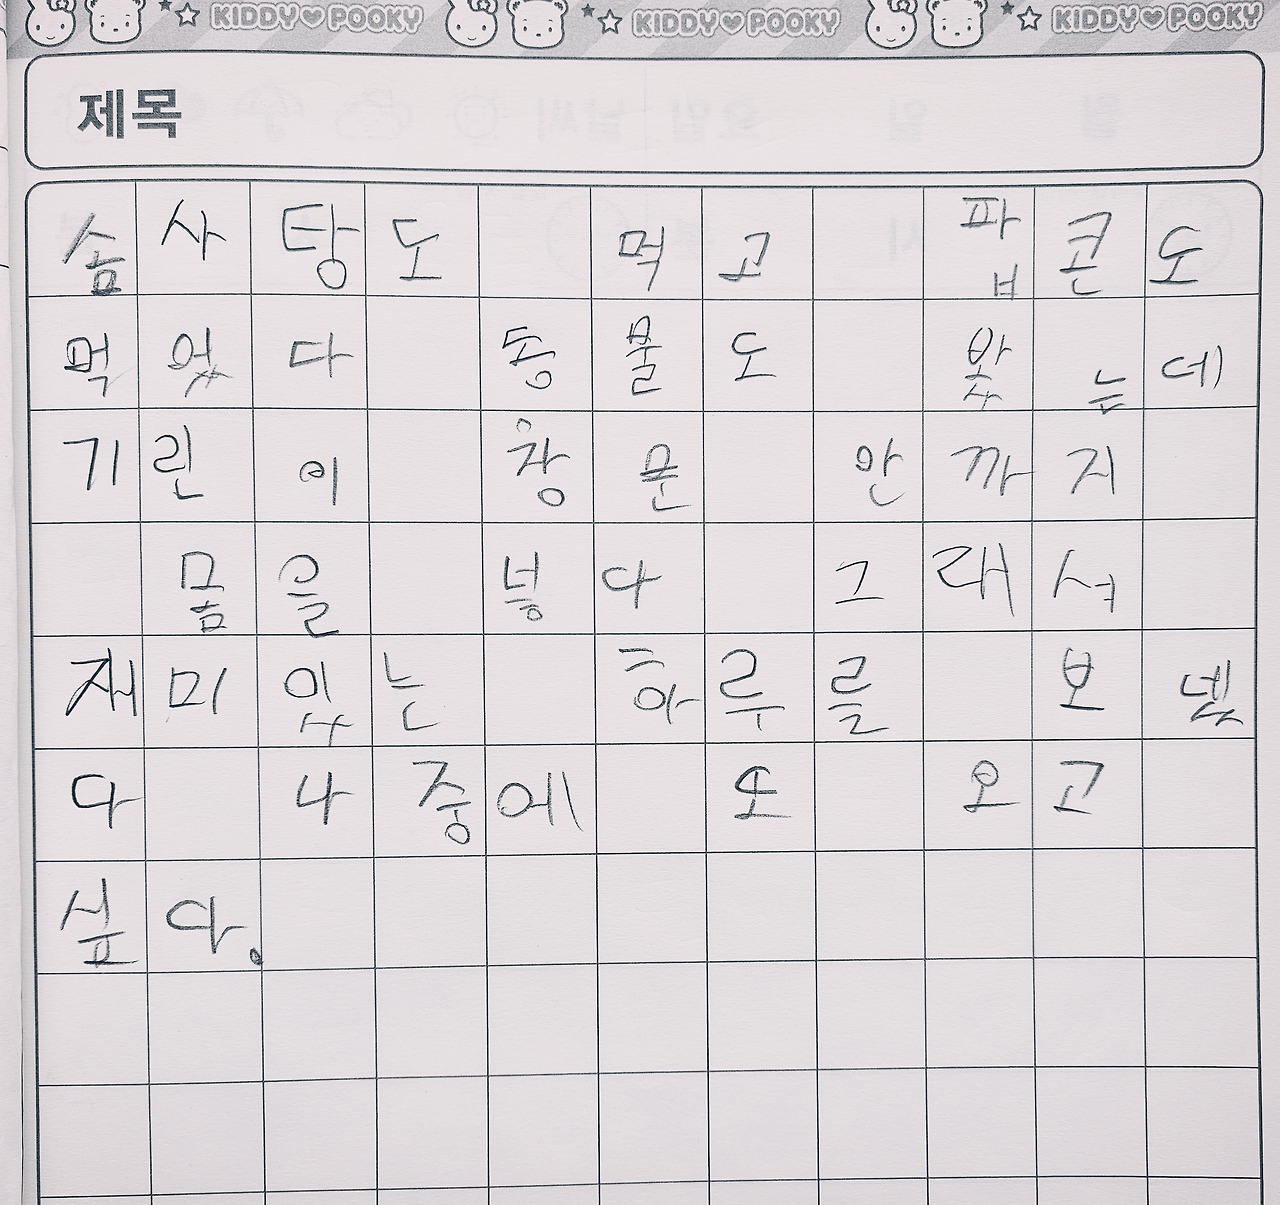 KIDDY♥POOKY KIDDY♥POOKY KIDDY♥POOKY
제목
솜사탕도 먹고 팝콘도
먹었다 동물도 봤는데
기린이 창문 안까지
몸을 넣다 그래서
재미있는 하루를 보넸
다 나중에 또 오고
싶다.